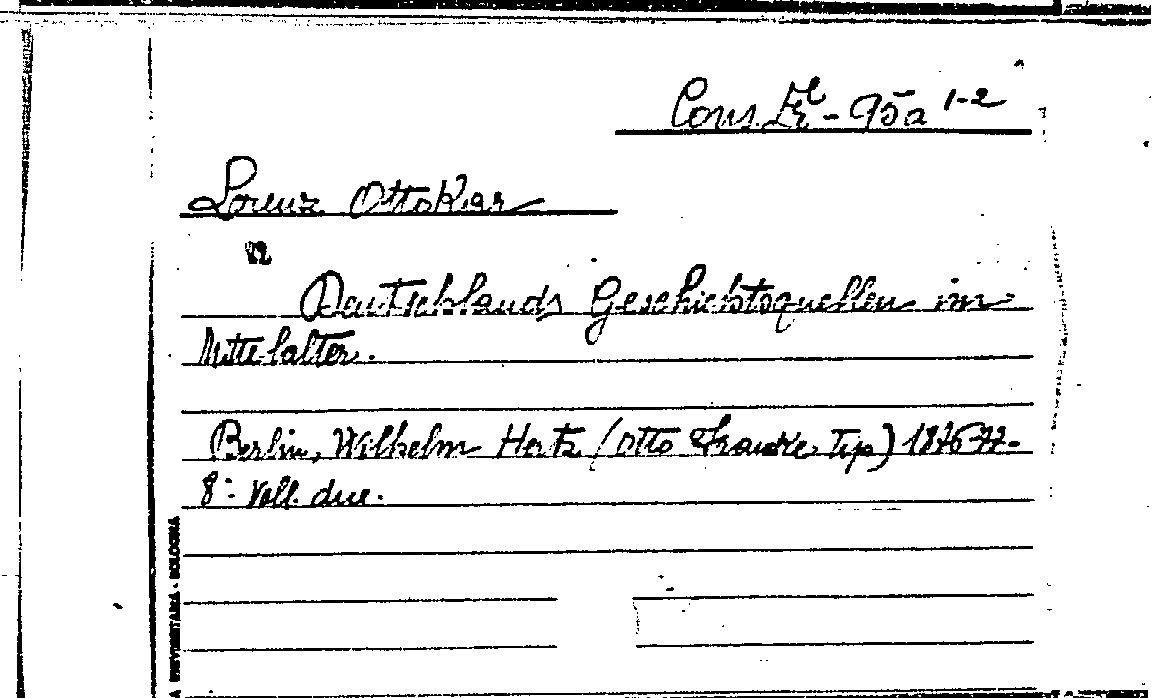 Cons. - 95a 1-2
Lorenz Ottokar
Deutschlands Geschichtsquellen im
Mittelalter.
Berlin, Wilhelm Hertz (Otto Francke, Tip) 1876-77-
8° Voll. due.
A UNIVERSITARIA - BOLOGNA